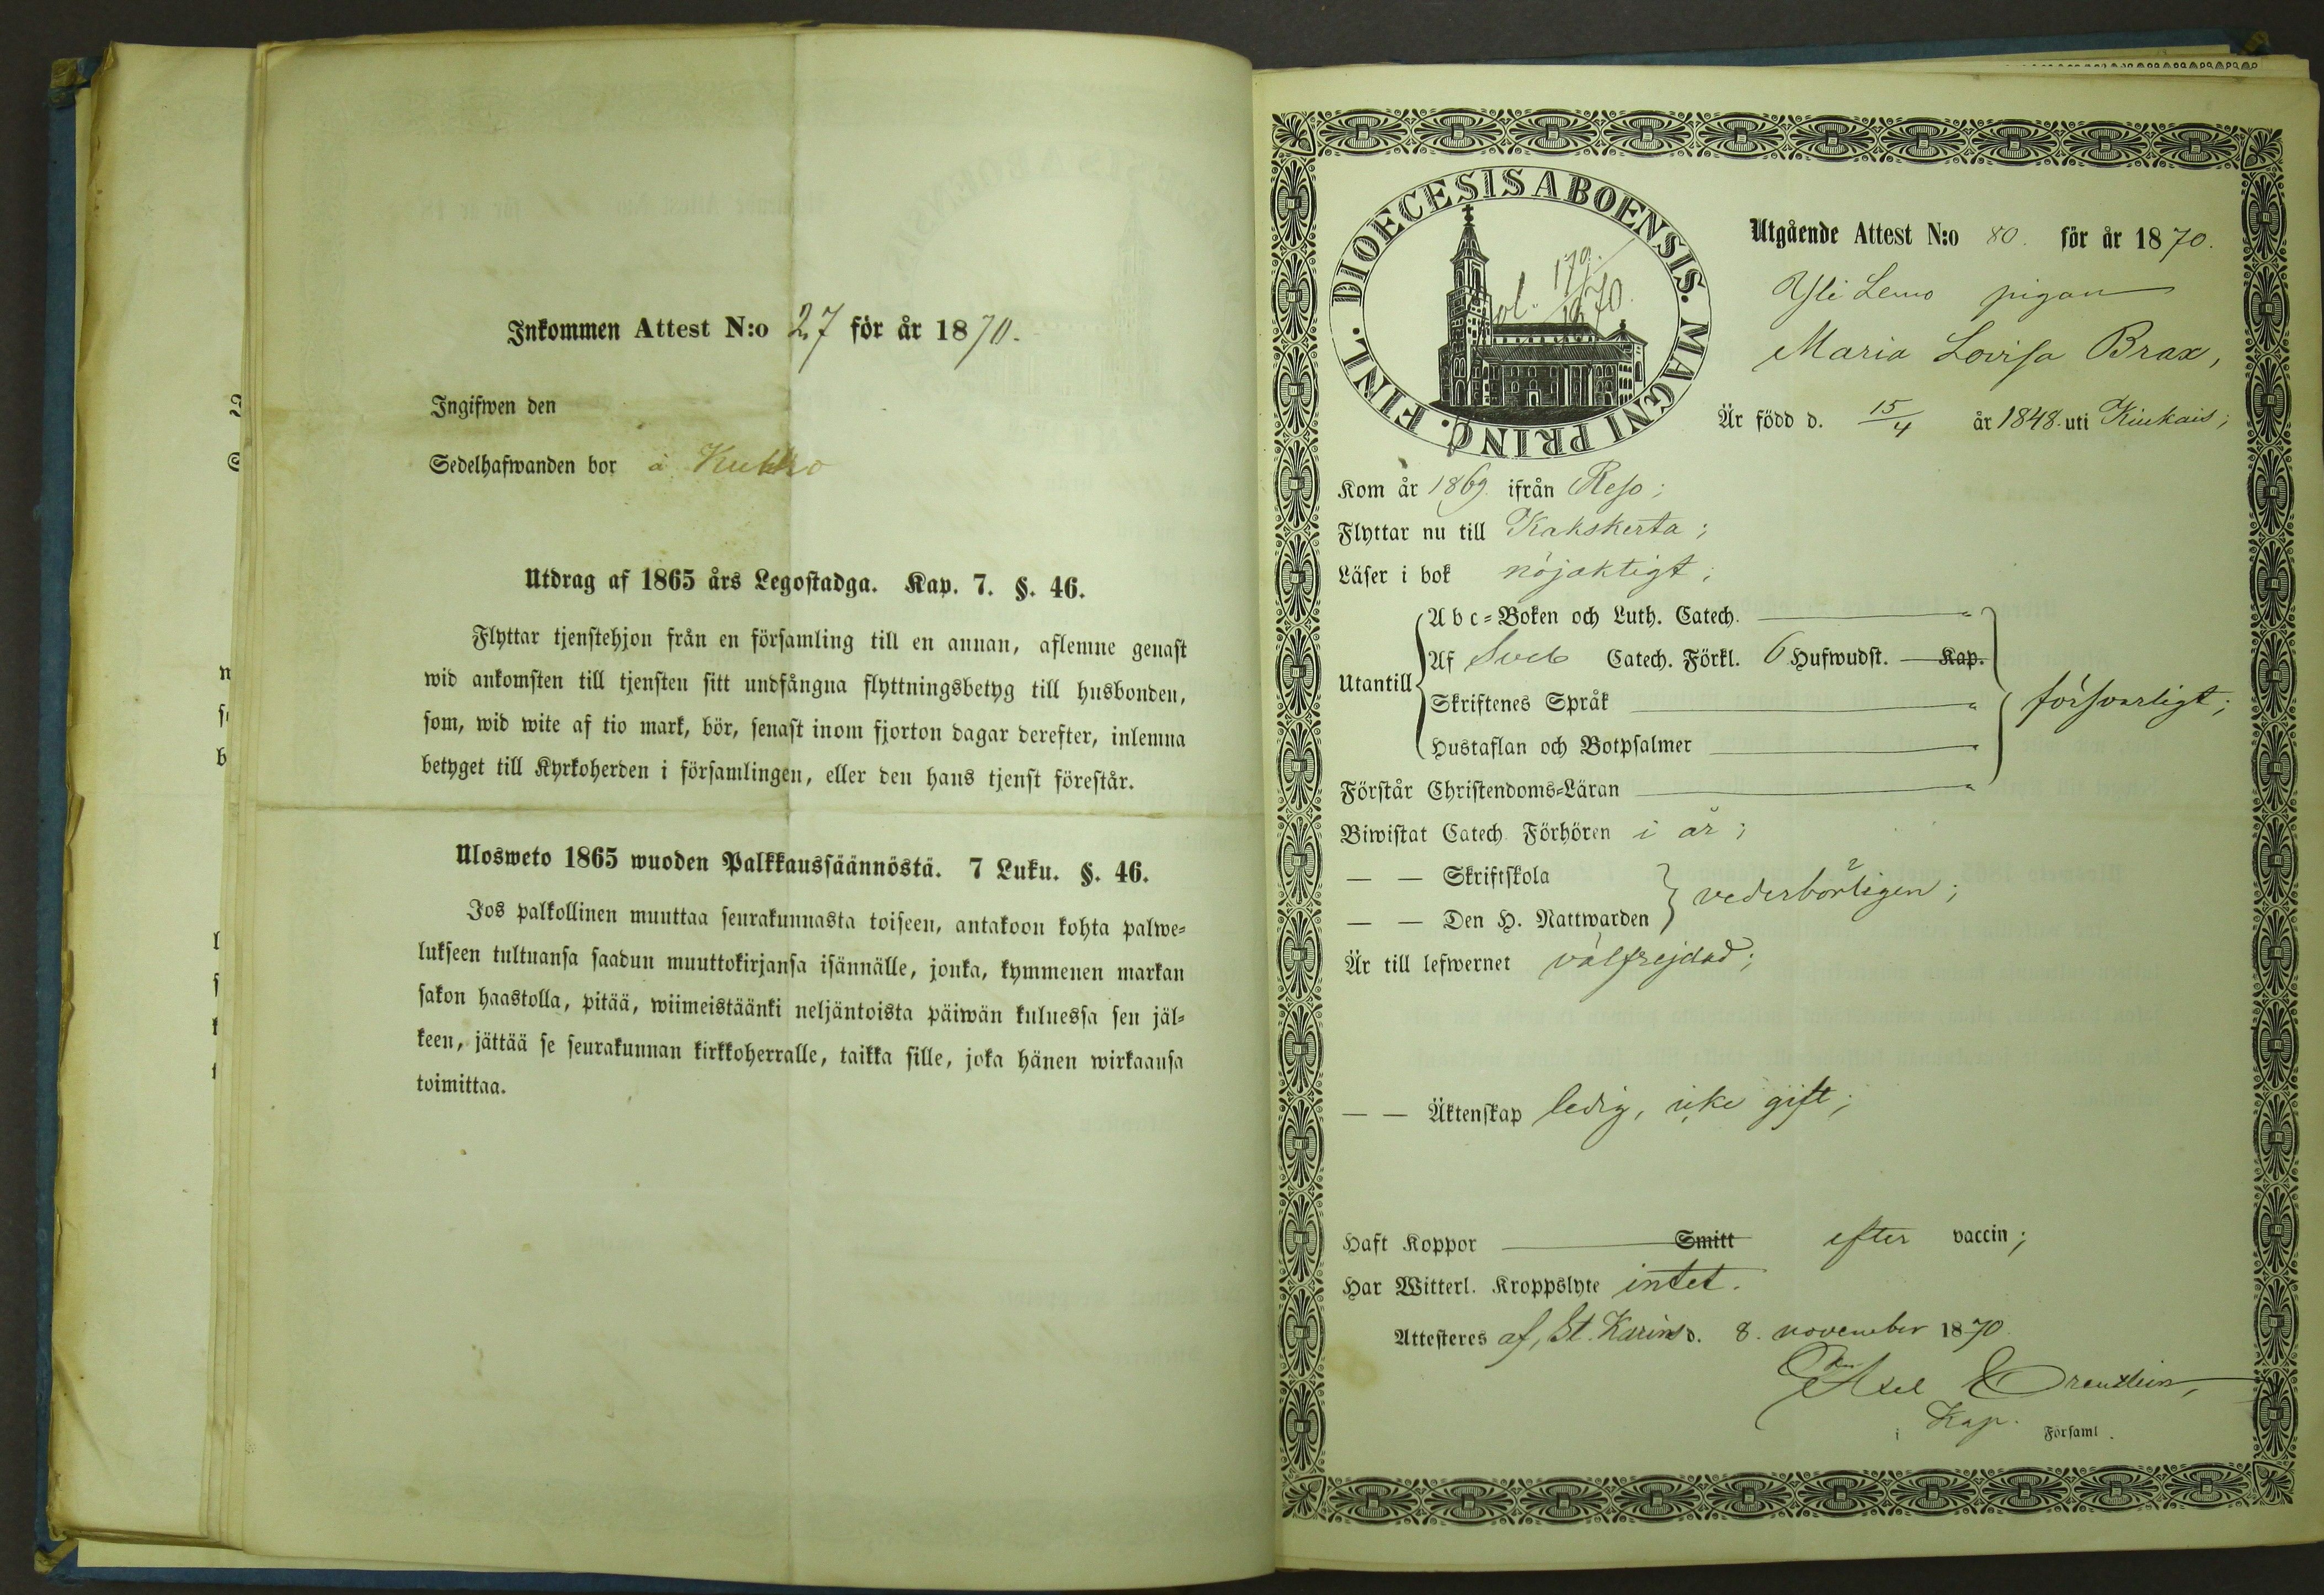 Inkommen Attest N:o 27 för år 1870.
Ingifwen den
Sedelhafwanden bor å
Utdrag af 1865 års Legostadga. Kap. 7. §. 46.
Flyttar tjenstehjon från en församling till en annan, aflemne genast
wid ankomsten till tjensten sitt undfångna flyttningsbetyg till husbonden,
som, wid wite af tio mark, bör, senast inom fjorton dagar derefter, inlemna
betyget till Kyrkoherden i församlingen, eller den hans tjenst förestår.
Ulosweto 1865 wuoden Palkkaussäännöstä. 7 Luku. §. 46.
Jos palkollinen muuttaa seurakunnasta toiseen, antakoon kohta palwe=
lukseen tultuansa saadun muuttokirjansa isännälle, jonka, kymmenen markan
sakon haastolla, pitää, wiimeistäänki neljäntoista päiwän kuluessa sen jäl=
keen, jättää se seurakunnan kirkkoherralle, taikka sille, joka hänen wirkaansa
toimittaa.
DIOECESIS ABOENSIS. MAGNI PRINC. FINL.
fol. 179.
1870.
Utgående Attest N:o 80. för år 1870.
Yli Lemo pigan
Maria Lovisa Brax,
Är född d. 15/4 år 1848. uti Kiukais;
Kom år 1869 ifrån Reso;
Flyttar nu till Kakskerta;
Läser i bok nöjaktigt;
Utantill
Abc=Boken och Luth. Catech. "
Af Sveb Catech. Förkl. 6 Hufwudst. Kap.
Skriftenes Språk "
Hustaflan och Botpsalmer "
försvarligt;
Förstår Christendoms=Läran "
Biwistat Catech. Förhören i år;
— — Skriftskola
— — Den H. Nattwarden
vederbörligen;
Är till lefwernet välfrejdad;
— — Äktenskap ledig, icke gift;
Haft Koppor Smitt efter vaccin;
Har Witterl. Kroppslyte intet.
Attesteres af, St. Karins d. 8. november 1870
Axel
Kap.
i Församl.